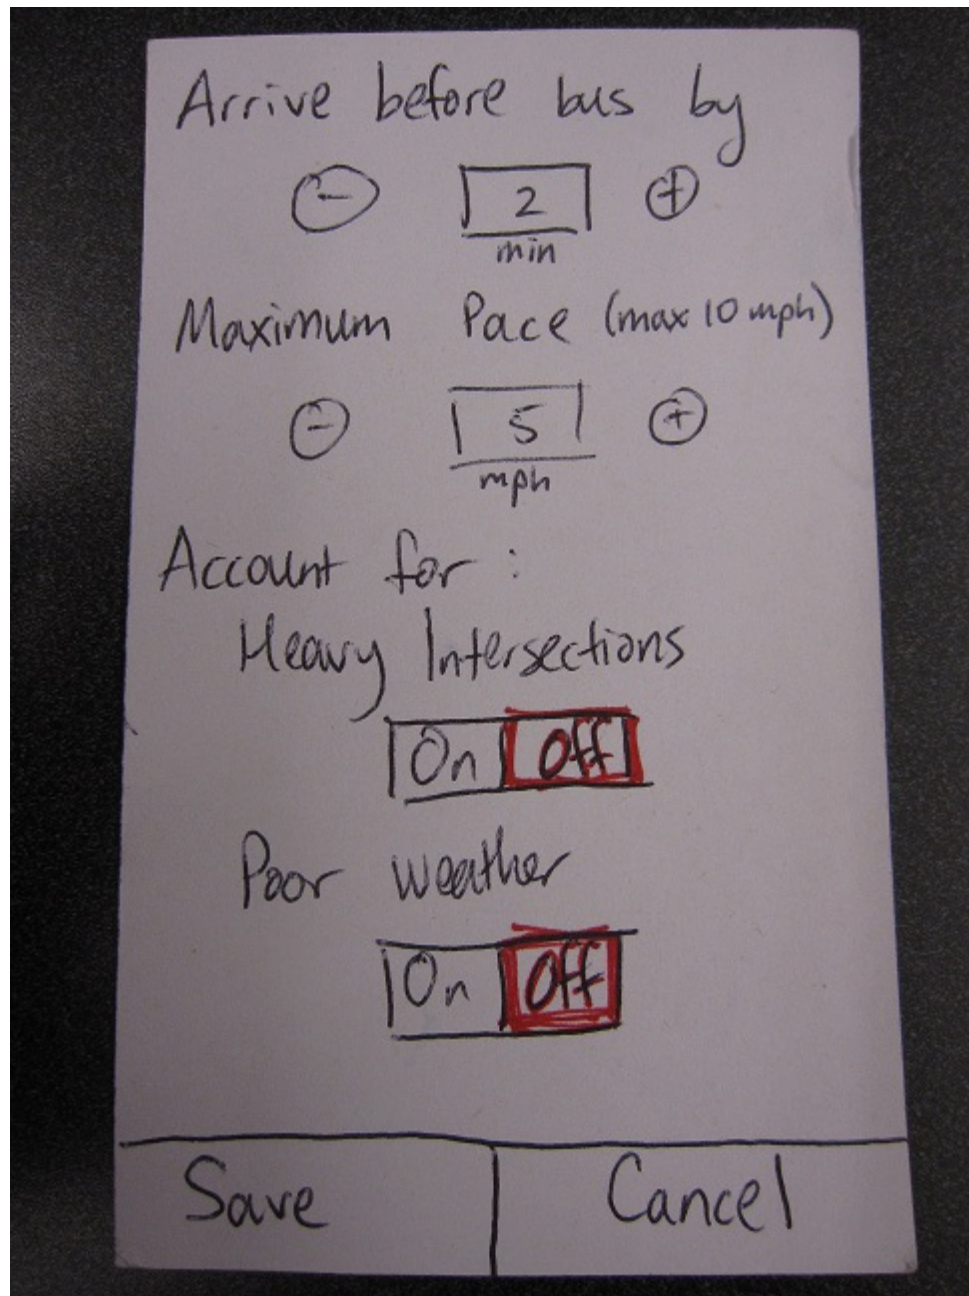 Arrive before bus by
- 2 +
min
Maximum Pace (max 10 mph)
- 5 +
mph
Account for :
Heavy Intersections
On Off
Poor weather
On Off
Save Cancel